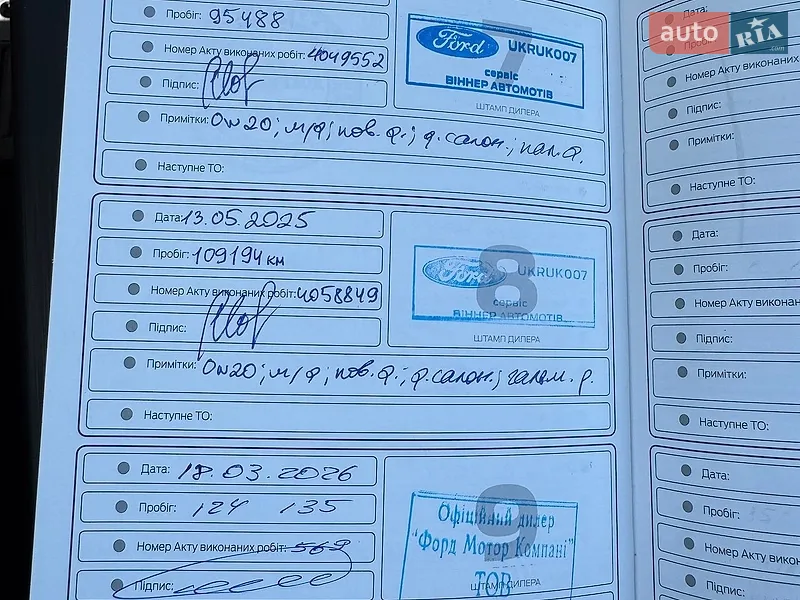 Пробіг: 95488
Номер Акту виконаних робіт: 4049552
Підпис:
Примітки: 0w20; м/ф; пов. ф.; ф. салон.; пал. ф.
Наступне ТО:
Ford UKRUK007
сервіс
ВІННЕР АВТОМОТІВ
ШТАМП ДИЛЕРА
7
Дата: 13.05.2025
Пробіг: 109194 км
Номер Акту виконаних робіт: 4058849
Підпис:
Примітки: 0w20; м/ф; пов. ф.; ф. салон.; гальм. р.
Наступне ТО:
8
Ford UKRUK007
сервіс
ВІННЕР АВТОМОТІВ
ШТАМП ДИЛЕРА
Дата: 18.03.2026
Пробіг: 124 135
Номер Акту виконаних робіт: 569
Підпис:
9
Офіційний дилер
"Форд Мотор Компані"
ТОВ
ШТАМП ДИЛЕРА
auto RIA .com
Дата:
Пробіг:
Номер Акту виконаних
Підпис:
Примітки:
Наступне ТО:
Дата:
Пробіг:
Номер Акту виконан
Підпис:
Примітки:
Наступне ТО:
Дата:
Пробіг:
Номер Акту виконан
Підпис: